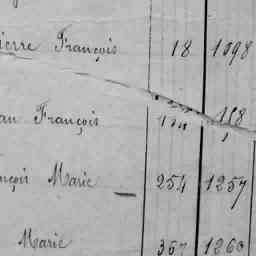 ierre François 18 1098
an François
nçois Marie — 254 1257
Marie 367 1260